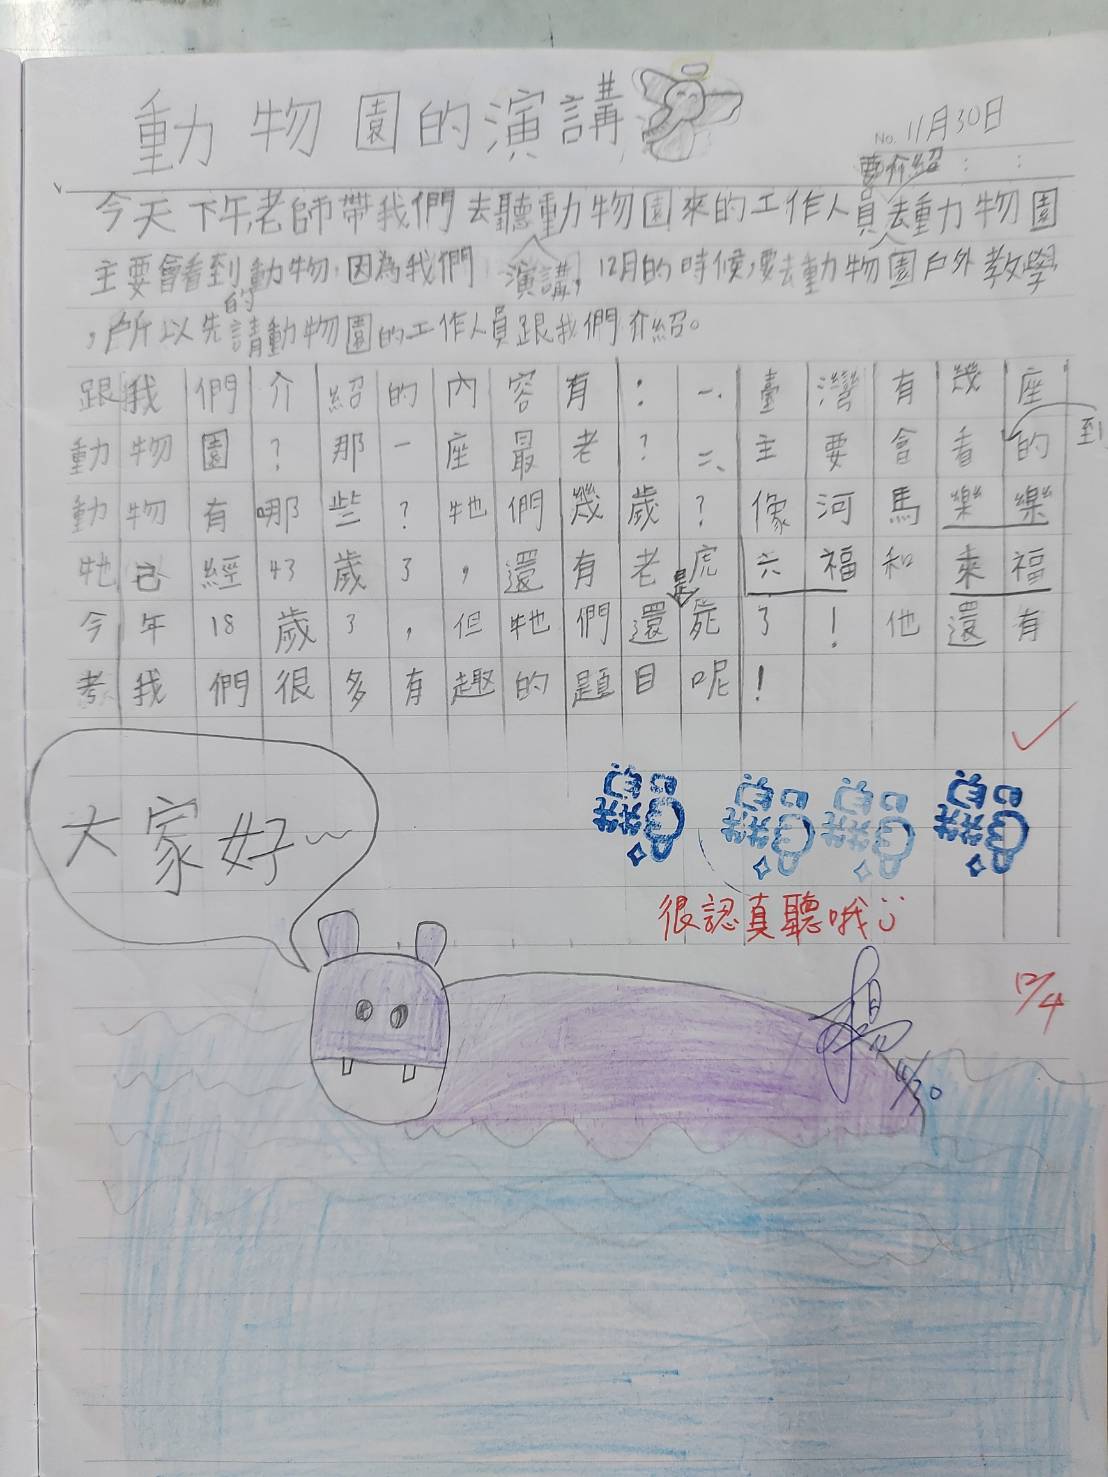 動物園的演講
No. 11月30日
要介紹
今天下午,老師帶我們去聽動物園來的工作人員去動物園
主要會看到動物,因為我們演講,12月的時候,要去動物園戶外教學
的
,所以先請動物園的工作人員跟我們介紹。
跟我們介紹的內容有:一、臺灣有幾座
動物園?那一座最老?二、主要會看的
到
動物有哪些?牠們幾歲?像河馬樂樂
牠已經43歲了,還有老虎六福和來福
是
今年18歲了,但牠們還死了!他還有
考我們很多有趣的題目呢!
大家好~
很認真聽哦
12/4
楊
11/30